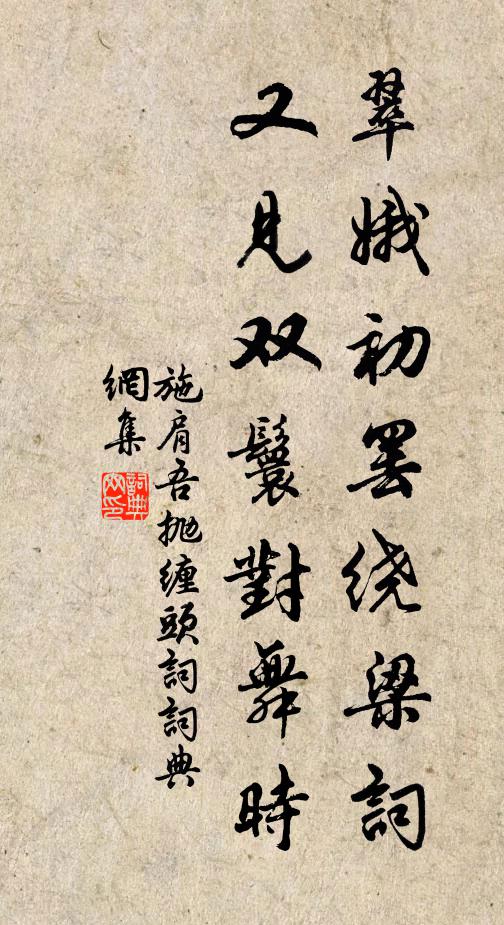 翠娥初罢绕梁词
又见双鬟對舞時
施肩吾抛缠頭詞詞典
網集
詞典
网印